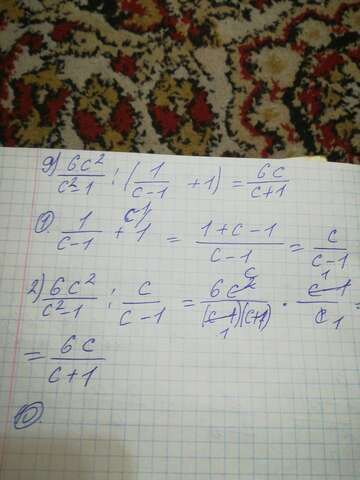 9) 6c²/c²-1 : (1/c-1 + 1) = 6c/c+1
①. 1/c-1 + 1 = 1+c-1/c-1 = c/c-1
2) 6c²/c²-1 : c/c-1 = 6c²/(c-1)(c+1) · c-1/c =
= 6c/c+1
10